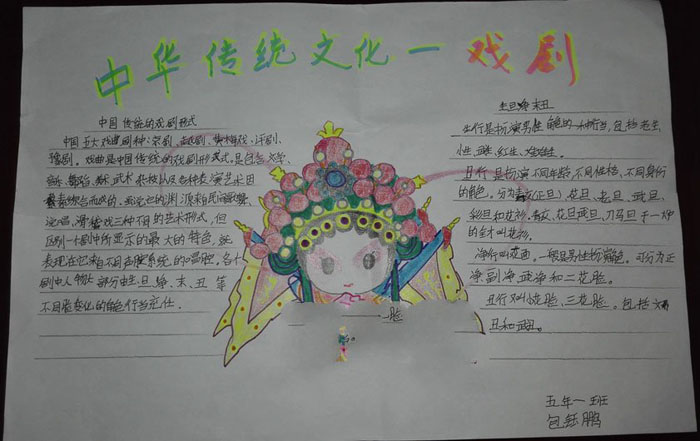 中华传统文化一戏剧
中国传统的戏剧形式
中国五大戏曲剧种:京剧、越剧、黄梅戏、评剧、
豫剧。戏曲是中国传统的戏剧形式。是包含文学、
音乐、舞蹈、美术、武术、杂技以及各种表演艺术因
素综合而成的。
说唱、滑稽戏三种不同的艺术形式,但
区别一个剧种所显示的最大的特色,
表现在它来自不同声腔系统的唱腔。各个
剧中人物大部分由生、旦、净、末、丑等
不同脸变化的角色行当充任。
生旦净末丑
生行是扮演男性角色的一种行当,包括老生、
小生、武生、红生、娃娃生。
旦行是扮演不同年龄、不同性格、不同身份
的角色。分为青衣(正旦)、花旦、老旦、武旦、
彩旦和花衫。青衣、花旦、武旦、刀马旦于一炉
的全才叫花衫。
净行叫花面。一般是男性扮演角色。可分为正
净、副净、武净和二花脸。
丑行叫小花脸、三花脸。包括文丑
丑和武丑。
脸
五年一班
包钰鹏